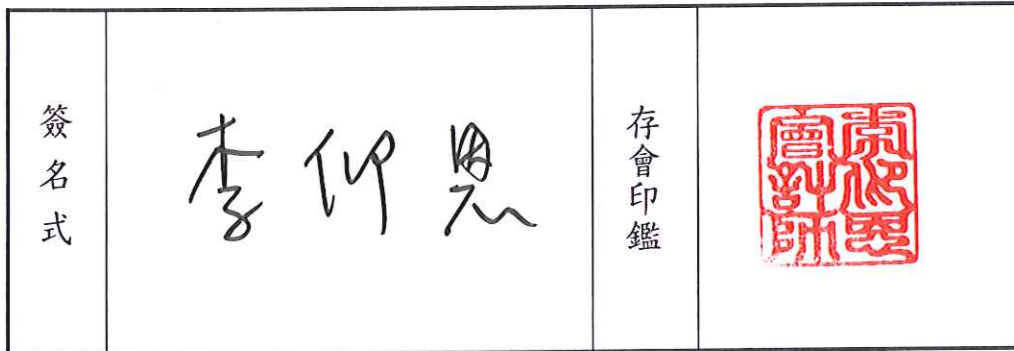 簽名式
李仰恩
存會印鑑
李仰恩
會計師